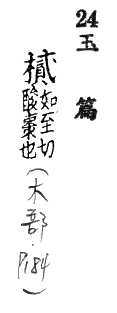 24玉篇
樲、如至切酸棗也(木部·P184)